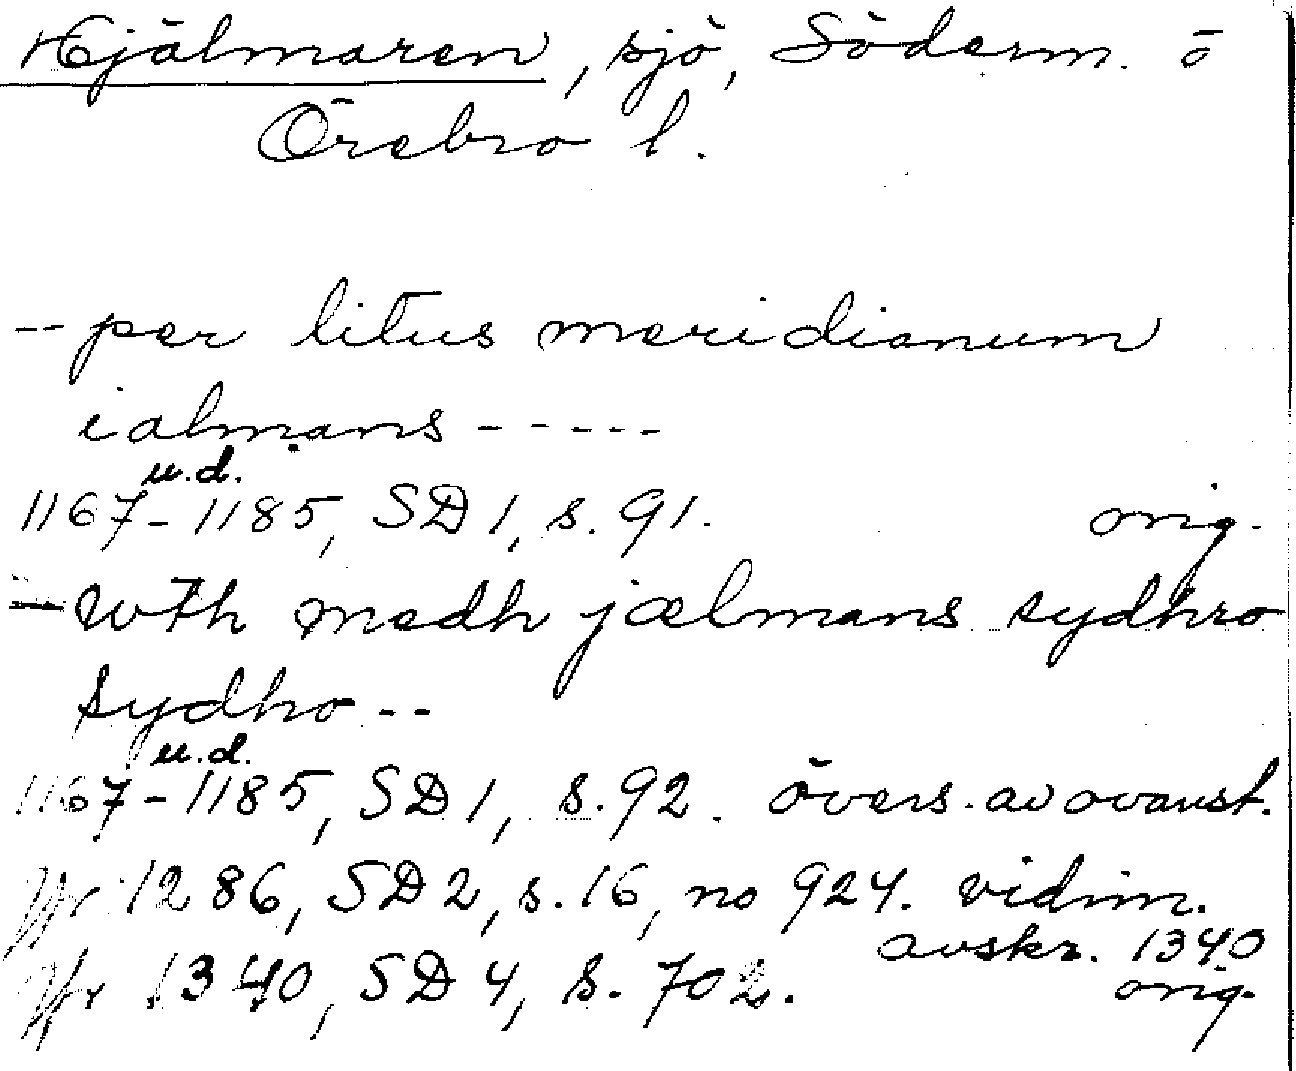 Hjälmaren, sjö, Söderm. o
Örebro l.
-- per litus meridianum
ialmans -----
u.d.
1167-1185, SD 1, s. 91. orig.
- wth medh jælmans sydhro
sydho --
u.d.
1167-1185, SD 1, s. 92. övers. av ovanst.
Jfr 1286, SD 2, s. 16, no 924. vidim.
avskr. 1340
Jfr 1340, SD 4, s. 702. orig.